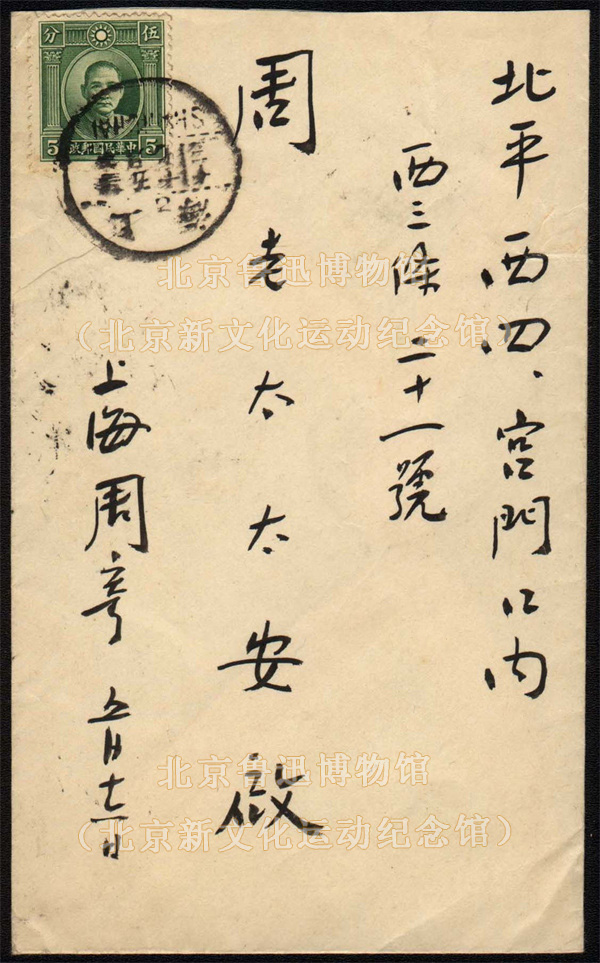 北平西四、宫門口内
西三條二十一號
周老太太安啟
上海周寄 五月十六日
伍分
5 中華民國郵政 5
上海
SHANGHAI
北京鲁迅博物馆
（北京新文化运动纪念馆）
北京鲁迅博物馆
（北京新文化运动纪念馆）